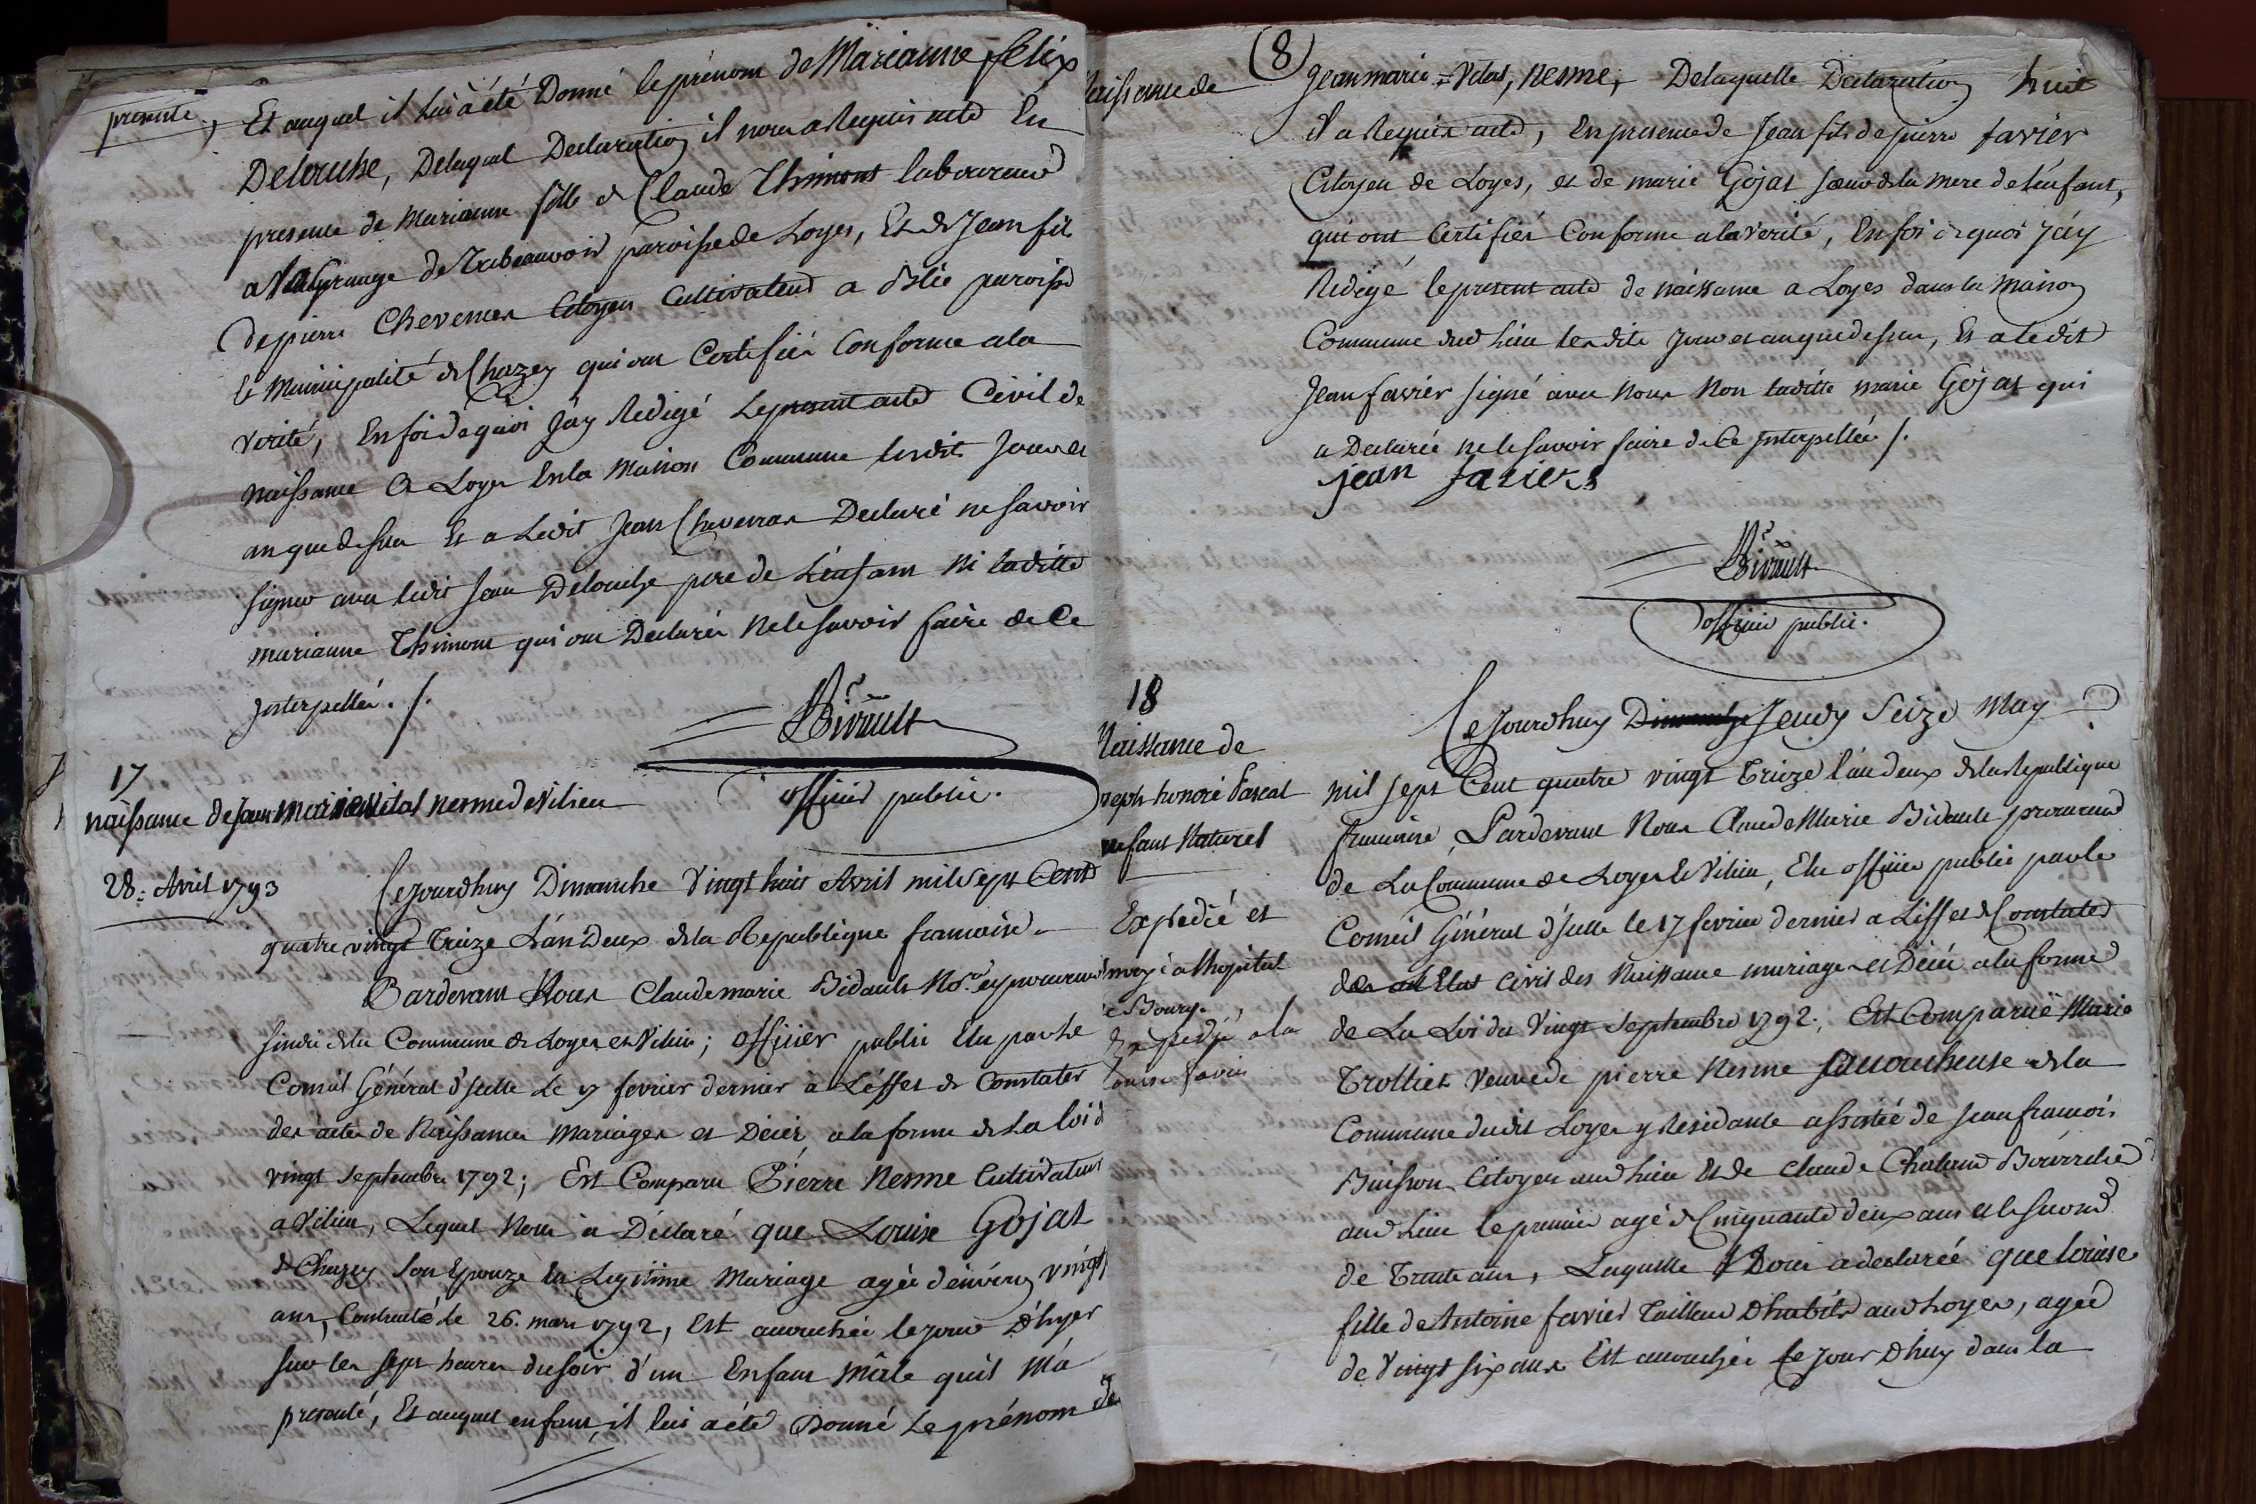 presenté, Et auquel il lui à été Donné le prénom de Marianne felix
Delouche, Delaquel Declaration il nous a Requis acte En
presence de Marianne fille de Claude Thimont laboureur
a la grange de paroisse de Loyes, Et de Jean fils
de pierre Chevenas Citoyen Cultivateur a Blie paroisse
et Municipalité de Chazey qui ont Certifiés Conforme a la
verité, En foi de quoi J'ay Redigé le present acte Civil de
naissance a Loyes En la Maison Commune lesdit Jour et
an que dessus Et a Ledit Jean Chevenas Declaré ne savoir
signer avec ledit Jean Delouche pere de L'enfant Ni laditte
marianne Thimont qui ont Declarés Ne le savoir faire de Ce
Interpellés ./.
Bidault
officier public.
17
naissance de Jean Marie Vital nesme de Vilieu
28. Avril 1793
Cejourdhuy Dimanche Vingt huit Avril mil sept Cent
quatre vingt Treize L'an Deux de la Republique francoise
Pardevant Nous Claude marie Bidault No.re et procureur
sindic de la Commune de Loyes et Vilieu; officier public Elu par le
Conseil Général d'Icelle Le 17 fevrier dernier à L'éffet de Constater
des actes de Naissances Mariages et Décés a la forme de La loi d
vingt septembre 1792; Est Comparu Pierre Nesme Cultivateur
a Vilieu, Lequel Nous à Déclaré que Louise Gojat
de Chazey son Epouze En Legitime Mariage agée d'environ vingt
ans, Contracté le 26. mars 1792, Est accouchée le jour D'hyer
sur les sept heures du soir d'un Enfant Mâle quil M'a
presenté, Et auquel enfant, il lui a été Donné Le prénom de
(8)
Naissance de
Jean marie = Vital, Nesme, De laquelle Declaration huit
il a Requis acte, En presence de Jean fils de pierre favier
Citoyen de Loyes, et de marie Gojat sœur de la Mere de l'enfant,
qui ont Certifiés Conforme a la Verité, En foi de quoi J'ay
Redigé le present acte de naissance a Loyes dans la Maison
Commune dud Lieu lesdits Jour et an que dessus, Et a ledit
Jean favier signé avec Nous Non laditte marie Gojat qui
a Declarée ne le savoir faire de Ce Interpellée ./.
jean favier
Bidault
officier public.
18
Naissance de
Joseph honoré Pascal
enfant Naturel
Expedié et
envoyé a L'hopital
de Bourg.
Expedié a la
Louise Favier
Cejourdhuy Dimanche Jeudy Seize May
mil sept Cent quatre vingt Treize l'an deux de la Republique
francoise, Pardevant Nous Claude Marie Bidault procureur
de La Commune de Loyes et Vilieu, Elu officier public par le
Conseil Général d'Icelle le 17 fevrier dernier a L'effet de Constater
Etat civil des Naissances mariages et Décés a la forme
de La Loi du Vingt septembre 1792., Est Comparuë Marie
Trolliet Veuve de pierre Nesme accoucheuse de la
Commune dudit Loyes y Residante assistée de Jean francois
Buisson Citoyen aud Lieu Et de Claude Bourrelier
aud Lieu le premier agé de Cinquante deux ans et le second
de Trente ans, Laquelle Nous a declarée que louise
fille de Antoine favier Tailleur D'habits aud Loyes, agée
de Vingt six ans Est accouchée Ce jour d'huy dans la